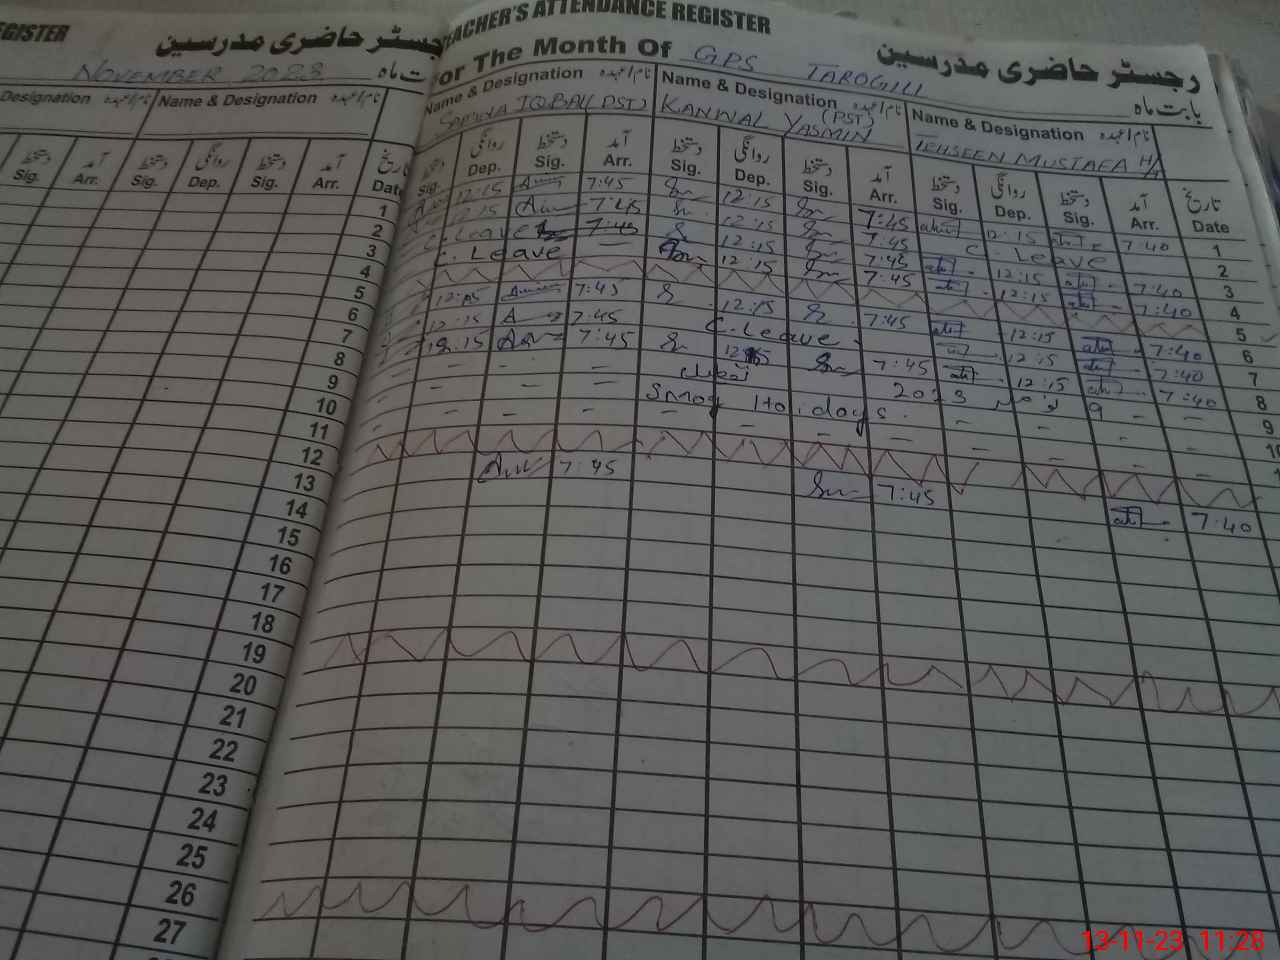 EGISTER رجسٹر حاضری مدرسین
NOVEMBER 2023 بابت ماہ
Designation نام/عہدہ Name & Designation نام/عہدہ
دستخط آمد دستخط روانگی دستخط آمد تاریخ
Sig. Arr. Sig. Dep. Sig. Arr. Date
1
2
3
4
5
6
7
8
9
10
11
12
13
14
15
16
17
18
19
20
21
22
23
24
25
26
27
TEACHER'S ATTENDANCE REGISTER رجسٹر حاضری مدرسین
For The Month Of GPS TAROGILL بابت ماہ
Name & Designation نام/عہدہ Name & Designation نام/عہدہ Name & Designation نام/عہدہ
IQBAL (PST) KANWAL YASMIN (PST) TEHSEEN MUSTAFA H/T
دستخط روانگی دستخط آمد دستخط روانگی دستخط آمد دستخط روانگی دستخط آمد تاریخ
Sig. Dep. Sig. Arr. Sig. Dep. Sig. Arr. Sig. Dep. Sig. Arr. Date
12:15 7:45 12:15 7:45 12:15 7:40 1
12:15 7:45 12:15 7:45 C. Leave 2
C. Leave 7:45 12:15 7:45 12:15 7:40 3
C. Leave 12:15 7:45 12:15 7:40 4
5
12:15 7:45 12:15 7:45 12:15 7:40 6
12:15 7:45 C. Leave 12:15 7:40 7
12:15 7:45 12:15 7:45 12:15 7:40 8
تعطیل 9 نومبر 2023 9
Smog Holidays
7:45 7:45 7:40
13-11-23 11:28